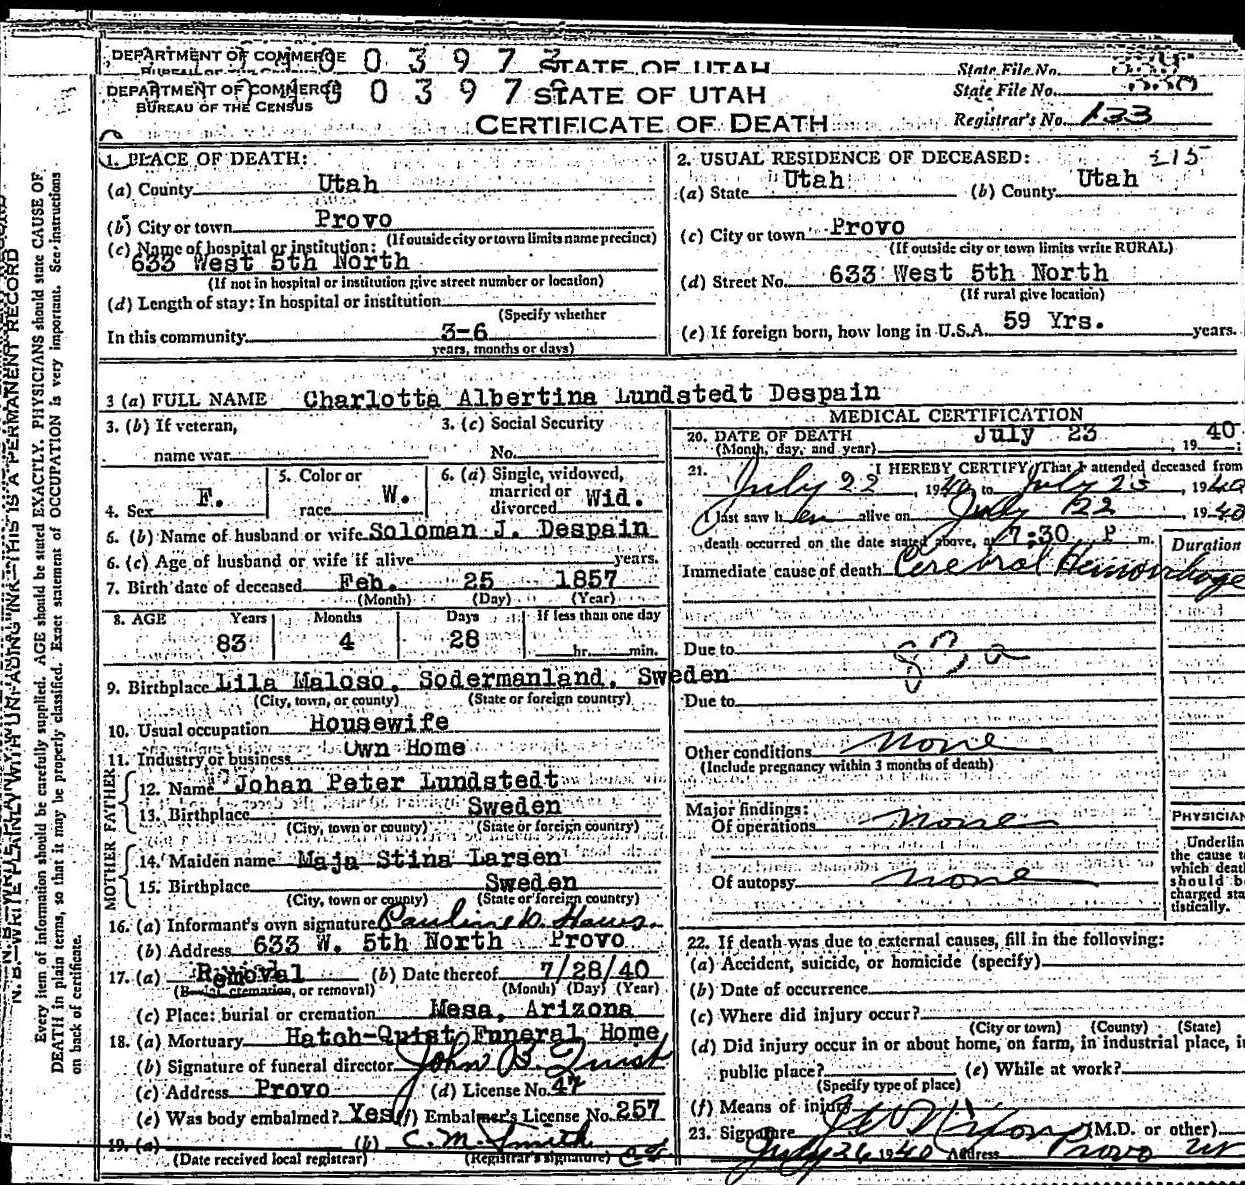 DEPARTMENT OF COMMERCE 0 0 3 9 7 STATE OF UTAH State File No.
DEPARTMENT OF COMMERCE 0 0 3 9 7 STATE OF UTAH State File No.
BUREAU OF THE CENSUS
CERTIFICATE OF DEATH Registrar's No. 133
1. PLACE OF DEATH:
(a) County Utah
(b) City or town Provo
(If outside city or town limits name precinct)
(c) Name of hospital or institution:
633 West 5th North
(If not in hospital or institution give street number or location)
(d) Length of stay: In hospital or institution
(Specify whether
In this community 3-6
years, months or days)
2. USUAL RESIDENCE OF DECEASED: 215
(a) State Utah (b) County Utah
(c) City or town Provo
(If outside city or town limits write RURAL)
(d) Street No. 633 West 5th North
(If rural give location)
(e) If foreign born, how long in U.S.A. 59 Yrs. years.
3 (a) FULL NAME Charlotta Albertina Lundstedt Despain
3. (b) If veteran, 3. (c) Social Security
name war No.
4. Sex F. 5. Color or race W. 6. (a) Single, widowed, married or divorced Wid.
6. (b) Name of husband or wife Soloman J. Despain
6. (c) Age of husband or wife if alive years.
7. Birth date of deceased Feb. 25 1857
(Month) (Day) (Year)
8. AGE Years Months Days If less than one day
83 4 28 hr. min.
9. Birthplace Lila Maloso, Sodermanland, Sweden
(City, town, or county) (State or foreign country)
10. Usual occupation Housewife
11. Industry or business Own Home
FATHER
12. Name Johan Peter Lundstedt
13. Birthplace Sweden
(City, town or county) (State or foreign country)
MOTHER
14. Maiden name Maja Stina Larsen
15. Birthplace Sweden
(City, town or county) (State or foreign country)
16. (a) Informant's own signature Pauline D. Haws.
(b) Address 633 W. 5th North Provo
17. (a) Removal (b) Date thereof 7/28/40
(Burial, cremation, or removal) (Month) (Day) (Year)
(c) Place: burial or cremation Mesa, Arizona
18. (a) Mortuary Hatch-Quist Funeral Home
(b) Signature of funeral director John B. Quist
(c) Address Provo (d) License No. 47
(e) Was body embalmed? Yes (f) Embalmer's License No. 257
19. (a) (b) C. M. Smith
(Date received local registrar) (Registrar's signature)
MEDICAL CERTIFICATION
20. DATE OF DEATH July 23 19 40
(Month, day, and year)
21. I HEREBY CERTIFY, That I attended deceased from
July 22, 1940 to July 23, 1940
I last saw her alive on July 22, 1940
death occurred on the date stated above, at 7:30 P m.
Duration
Immediate cause of death Cerebral Hemorrhage
Due to 83a
Due to
Other conditions none
(Include pregnancy within 3 months of death)
Major findings:
Of operations none
Of autopsy none
PHYSICIAN
Underlin
the cause t
which deat
should b
charged sta
tistically.
22. If death was due to external causes, fill in the following:
(a) Accident, suicide, or homicide (specify)
(b) Date of occurrence
(c) Where did injury occur?
(City or town) (County) (State)
(d) Did injury occur in or about home, on farm, in industrial place, i
public place? (e) While at work?
(Specify type of place)
(f) Means of injury
23. Signature Nixon (M.D. or other)
July 26 1940 Address Provo Ut
N. B.—WRITE PLAINLY WITH UNFADING INK—THIS IS A PERMANENT RECORD
Every item of information should be carefully supplied. AGE should be stated EXACTLY. PHYSICIANS should state CAUSE OF
DEATH in plain terms, so that it may be properly classified. Exact statement of OCCUPATION is very important. See instructions
on back of certificate.